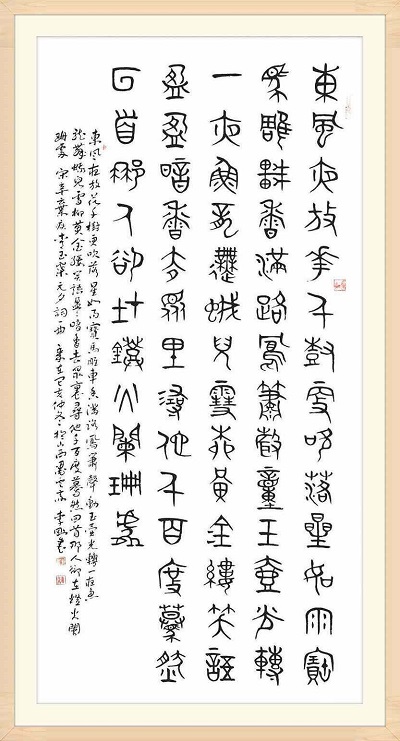 東風夜放華千樹更吹落星如雨寶
馬雕車香滿路鳳簫聲動玉壺光轉
一夜魚龍舞蛾兒雪柳黃金縷笑語
盈盈暗香去眾里尋他千百度驀然
回首那人卻在燈火闌珊處
東風夜放花千樹更吹落星如雨寶馬雕車香滿路鳳簫聲動玉壺光轉一夜魚
龍舞蛾兒雪柳黃金縷笑語盈盈暗香去眾裏尋他千百度驀然回首那人卻在燈火闌
珊處 宋辛棄疾青玉案元夕詞一曲 亥仲冬於山西 李